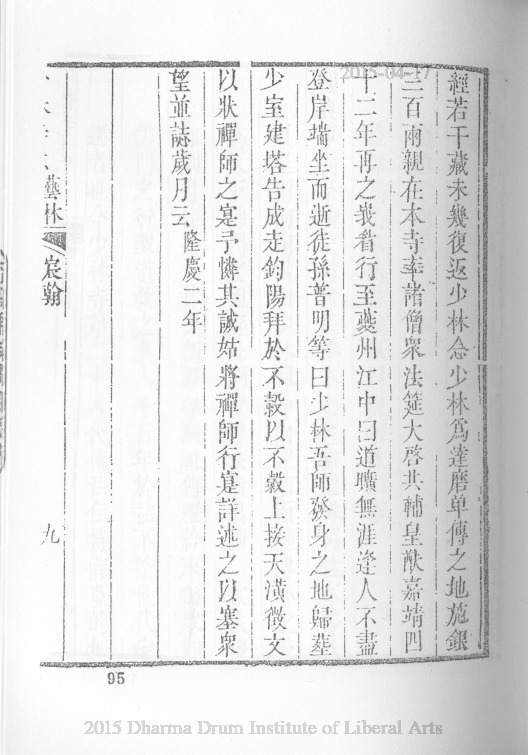 經若干藏未幾復返少林念少林爲達磨单傳之地施銀
三百兩親在本寺奉諸僧衆法筵大啓共輔皇猷嘉靖四
十二年再之峩眉行至夔州江中曰道曠無涯逢人不盡
登岸端坐而逝徒孫普明等曰少林吾師發身之地歸塟
少室建塔告成走鈞陽拜於不穀以不穀上接天潢徵文
以狀禪師之寔予憐其誠姑將禪師行寔詳述之以塞衆
望並誌歲月云 隆慶二年
藝林 宸翰 九
95
2015-04-17
2015 Dharma Drum Institute of Liberal Arts